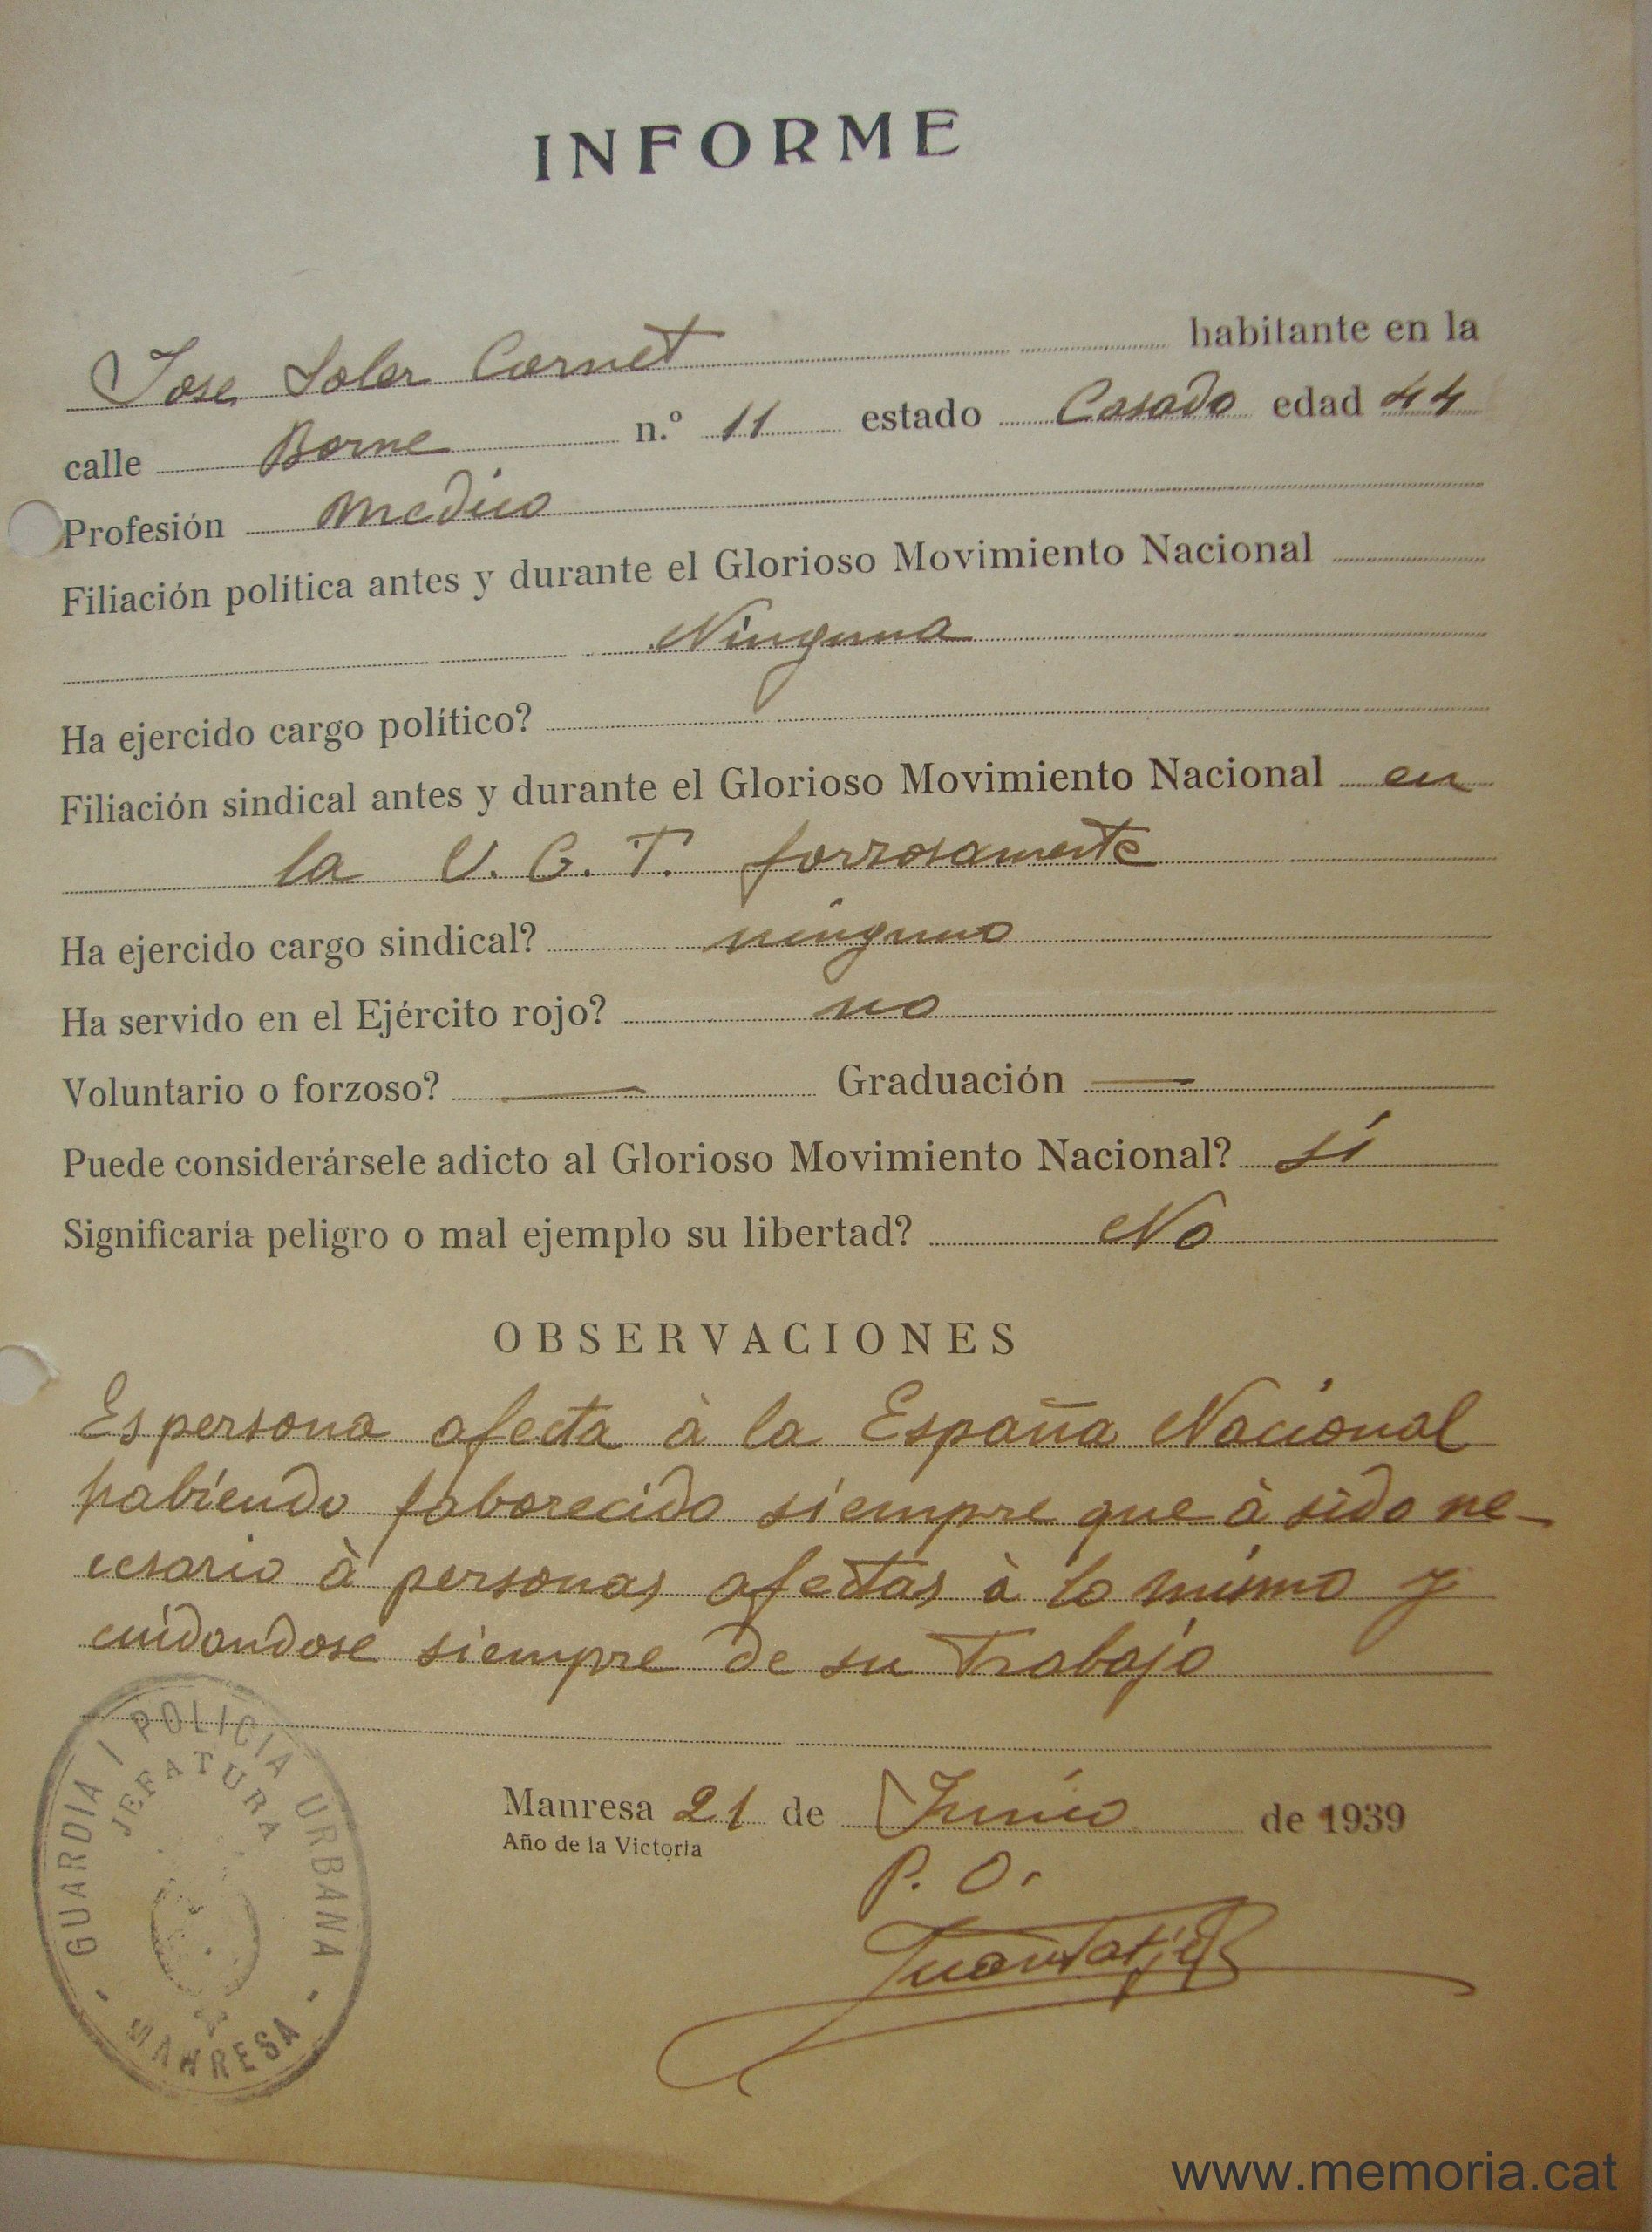 INFORME
Jose Soler Cornet habitante en la
calle Borne n.º 11 estado Casado edad 44
Profesión Medico
Filiación política antes y durante el Glorioso Movimiento Nacional
Ninguna
Ha ejercido cargo político?
Filiación sindical antes y durante el Glorioso Movimiento Nacional en
la U. G. T. forrosamente
Ha ejercido cargo sindical? ninguno
Ha servido en el Ejército rojo? no
Voluntario o forzoso? — Graduación —
Puede considerársele adicto al Glorioso Movimiento Nacional? sí
Significaría peligro o mal ejemplo su libertad? No
OBSERVACIONES
Es persona afecta à la España Nacional
habiendo faborecido siempre que à sido ne-
cesario à personas afectas à lo mismo y
cuidandose siempre de su Trabajo
GUARDIA I POLICIA URBANA
JEFATURA
MANRESA
Manresa 21 de Junio de 1939
Año de la Victoria
P. O.
www.memoria.cat